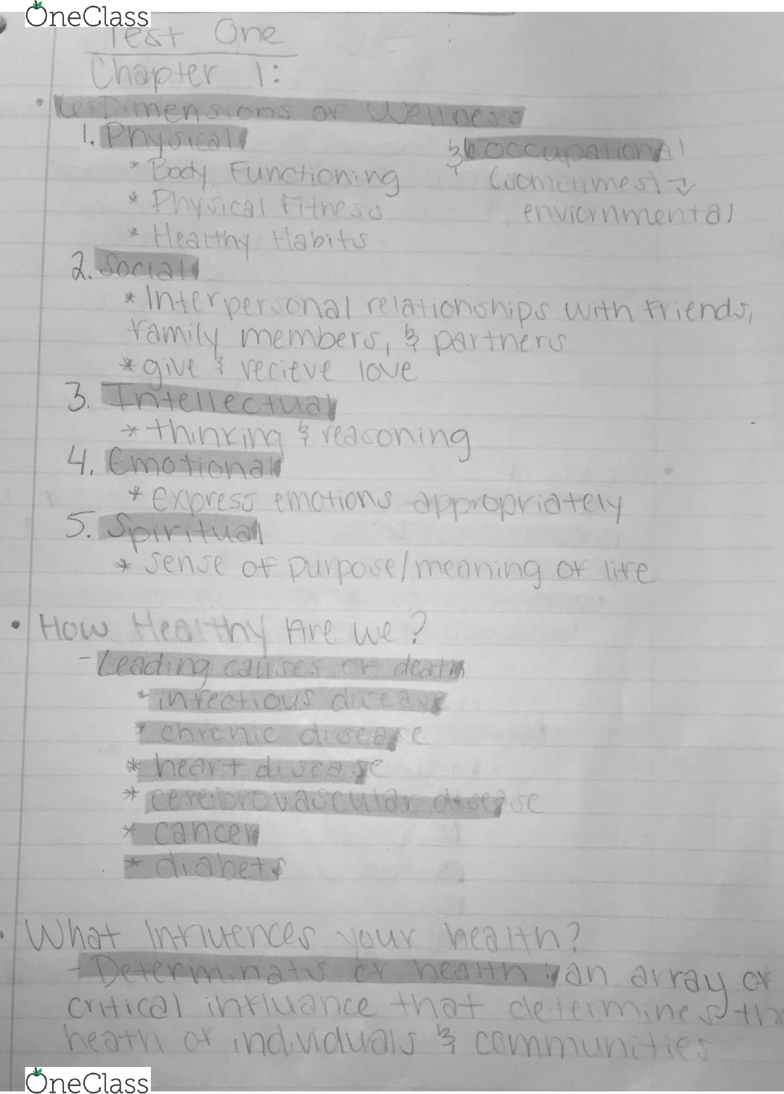 OneClass
Test One
Chapter 1:
• 6 Dimensions of Wellness
1. Physical
* Body Functioning
* Physical Fitness
* Healthy Habits
& 6 occupational
(sometimes) ↓
enviornmental
2. Social
* Interpersonal relationships with friends,
family members, & partners
* give & recieve love
3. Intellectual
* thinking & reasoning
4. Emotional
* express emotions appropriately
5. Spiritual
* sense of purpose/meaning of life
• How Healthy Are we?
- Leading causes of death
* infectious disease
* chronic disease
* heart disease
* cerebrovascular disease
* cancer
* diabets
• What Influences your health?
- Determinats of health: an array of
critical influance that determines th
heath of individuals & communities
OneClass